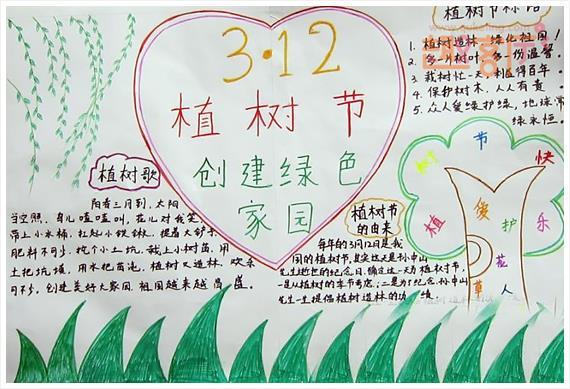 3·12
植树节
创建绿色
家园
植树节标语
1. 植树造林，绿化祖国！
2. 多一片树叶，多一份温馨。
3. 栽树忙一天，利益得百年。
4. 保护树木，人人有责。
5. 众人爱绿护绿，地球常
绿永恒。
植树歌
阳春三月到，太阳
当空照，鸟儿喳喳叫，花儿对我笑，
带上小水桶，扛起小铁锹，提着大铲子，
肥料不可少，挖个小土坑，栽上小树苗，用
土把坑填，用水把苗浇，植树又造林，欢乐
可不少，创建美好大家园，祖国越来越昌盛。
植树节
的由来
每年的3月12日是我
国的植树节，其实这天是孙中山
先生逝世的纪念日，确定这一天为植树节，
一是从植树的季节考虑；二是为了纪念孙中山
先生一生提倡植树造林的功绩。
树 节 快
植 爱 护 乐
花
草 人